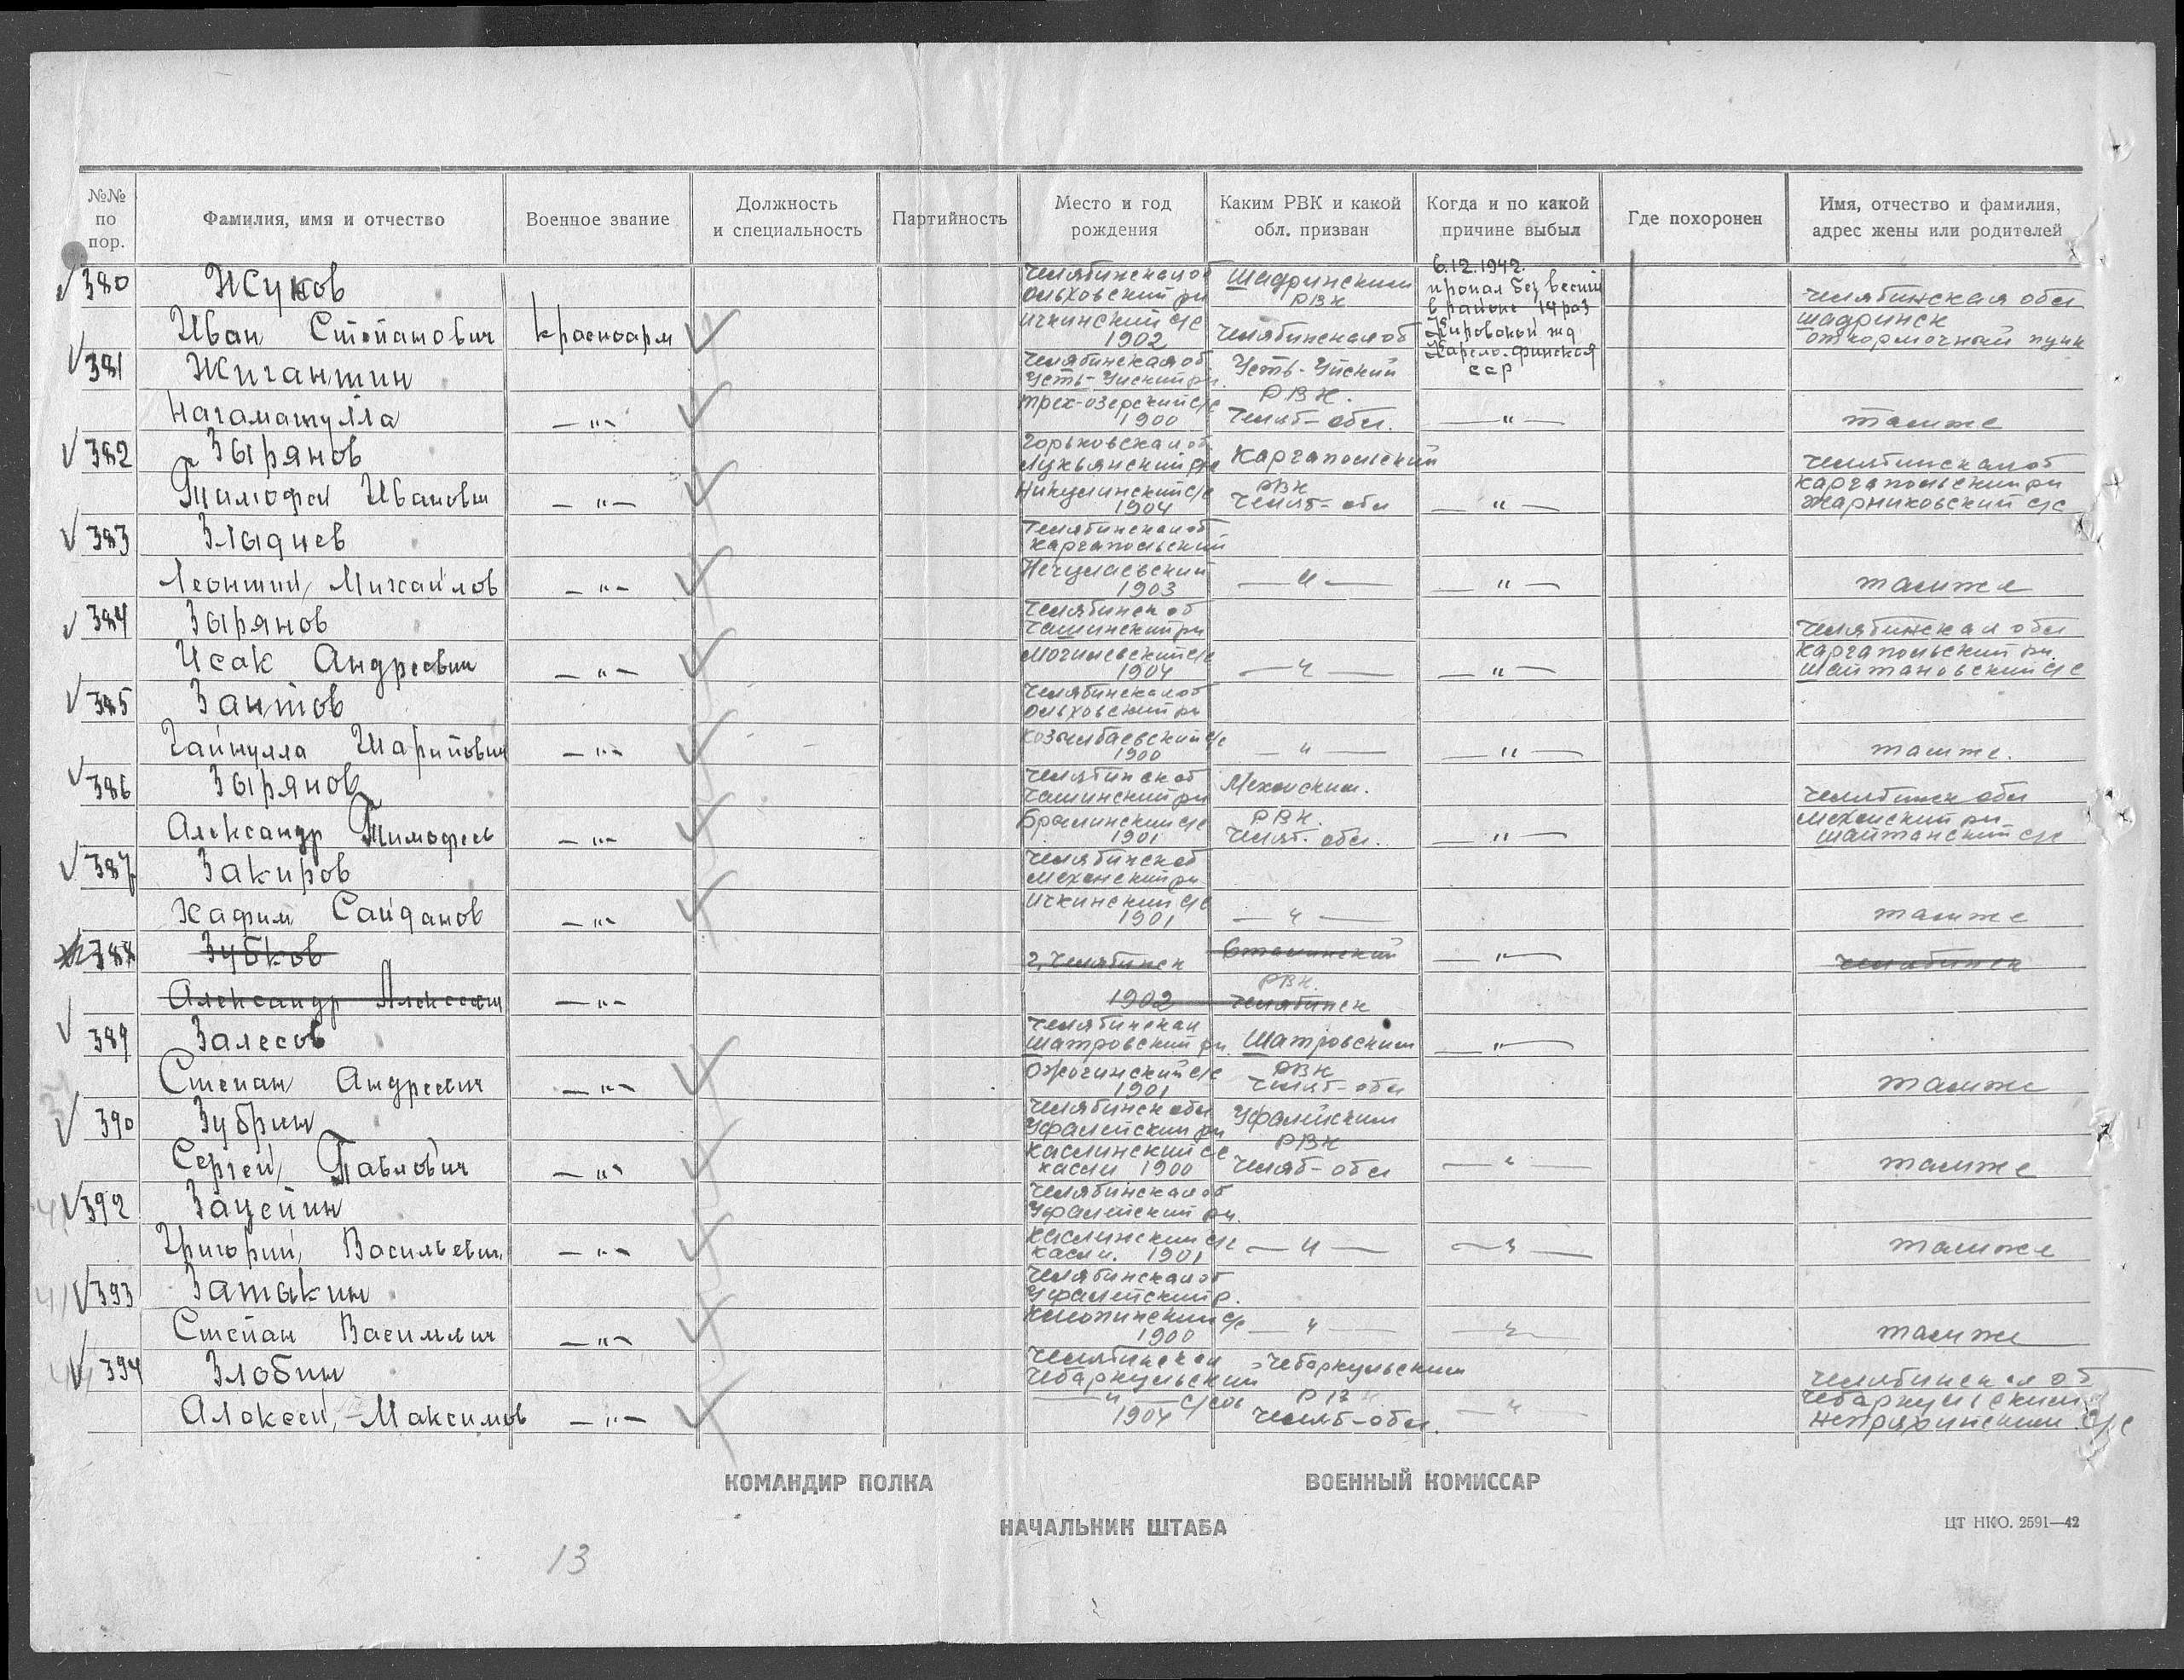 №№ по пор.
Фамилия, имя и отчество
Военное звание
Должность и специальность
Партийность
Место и год рождения
Каким РВК и какой обл. призван
Когда и по какой причине выбыл
Где похоронен
Имя, отчество и фамилия, адрес жены или родителей
380 Жуков
Иван Степанович
красноарм
Челябинская об
Ольховский рн
Ичкинский с/с
1902
Шадринский
РВК
Челябинская об
6.12.1942.
пропал без вести
в районе 14 раз
Кировской жд
Карело-финская
сср
Челябинская обл
Шадринск
откормочный пунк
381 Жигантин
— " —
Челябинская об
Усть-Уйский рн.
трех-озерский с/с
1900
Усть-Уйский
РВК.
Челяб-обл.
— " —
тамже
382 Зырянов
Тимофей Иванович
— " —
Горьковская об
Никулинский с/с
1904
Каргапольский
РВК
Челяб-обл
— " —
Челябинская об
Каргапольский рн
Жарниковский с/с
383
Леонтий Михайлов
— " —
Челябинская об
Каргапольский
1903
— " —
— " —
тамже
384 Зырянов
Исак Андреевич
— " —
Челябинск об
Чашинский рн
Могилевский с/с
1904
— " —
— " —
Челябинская обл
Каргапольский рн.
Шайтановский с/с
385 Заитов
Гайнулла Шарипович
— " —
Челябинская об
Ольховский рн
1900
— " —
— " —
тамже.
386 Зырянов
Александр Тимофеев
— " —
Челябинск об
Чашинский рн
1901
Мехонский.
РВК.
Челяб. обл.
— " —
Челябинск обл
Мехонский рн
Шайтанский с/с
387 Закиров
— " —
Челябинск об
Мехонский рн
Ичкинский с/с
1901
— " —
тамже
388 Зубков
Александр Алексеевич
— " —
г. Челябинск
1902
Сталинский
РВК.
Челябинск
— " —
Челябинск
389 Залесов
Степан Андреевич
— " —
Челябинская
Шатровский рн.
Ожогинский с/с
1901
Шатровский
РВК
Челяб-обл
— " —
тамже
390 Зубрин
Сергей Павлович
— " —
Челябинск обл
Уфалейский рн
Каслинский с/с
касли 1900
Уфалейский
РВК
Челяб-обл
— " —
тамже
392 Зацепин
Григорий Васильевич
— " —
Челябинская об
Уфалейский рн.
Каслинский с/с
касли. 1901
— " —
— " —
тамже
393 Затыкин
Степан Васильевич
— " —
Челябинская об
Уфалейский р.
1900
— " —
— " —
тамже
394 Злобин
Алексей Максимов
— " —
Челябинская
Чебаркульский
— " — с/сов
1904
Чебаркульский
РВК
Челяб-обл.
— " —
Челябинская об
Чебаркульский
Непряхинский с/с
КОМАНДИР ПОЛКА
ВОЕННЫЙ КОМИССАР
НАЧАЛЬНИК ШТАБА
ЦТ НКО. 2591—42
13